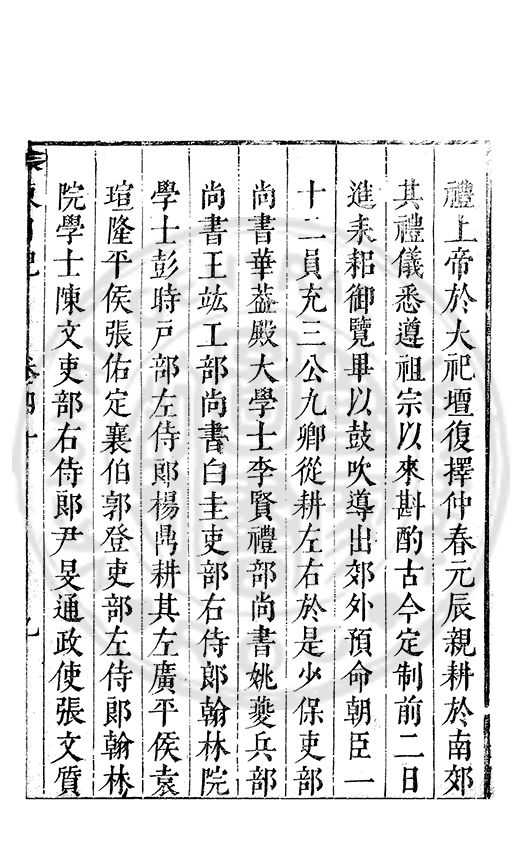 禮上帝於大祀壇復擇仲春元辰親耕於南郊
其禮儀悉遵祖宗以來斟酌古今定制前二日
進耒耜御覽畢以鼓吹導出郊外預命朝臣一
十二員充三公九卿從耕左右於是少保吏部
尚書華葢殿大學士李賢禮部尚書姚夔兵部
尚書王竑工部尚書白圭吏部右侍郎翰林院
學士彭時戸部左侍郎楊鼎耕其左廣平侯袁
瑄隆平侯張佑定襄伯郭登吏部左侍郎翰林
院學士陳文吏部右侍郎尹旻通政使張文質
卷四十
九